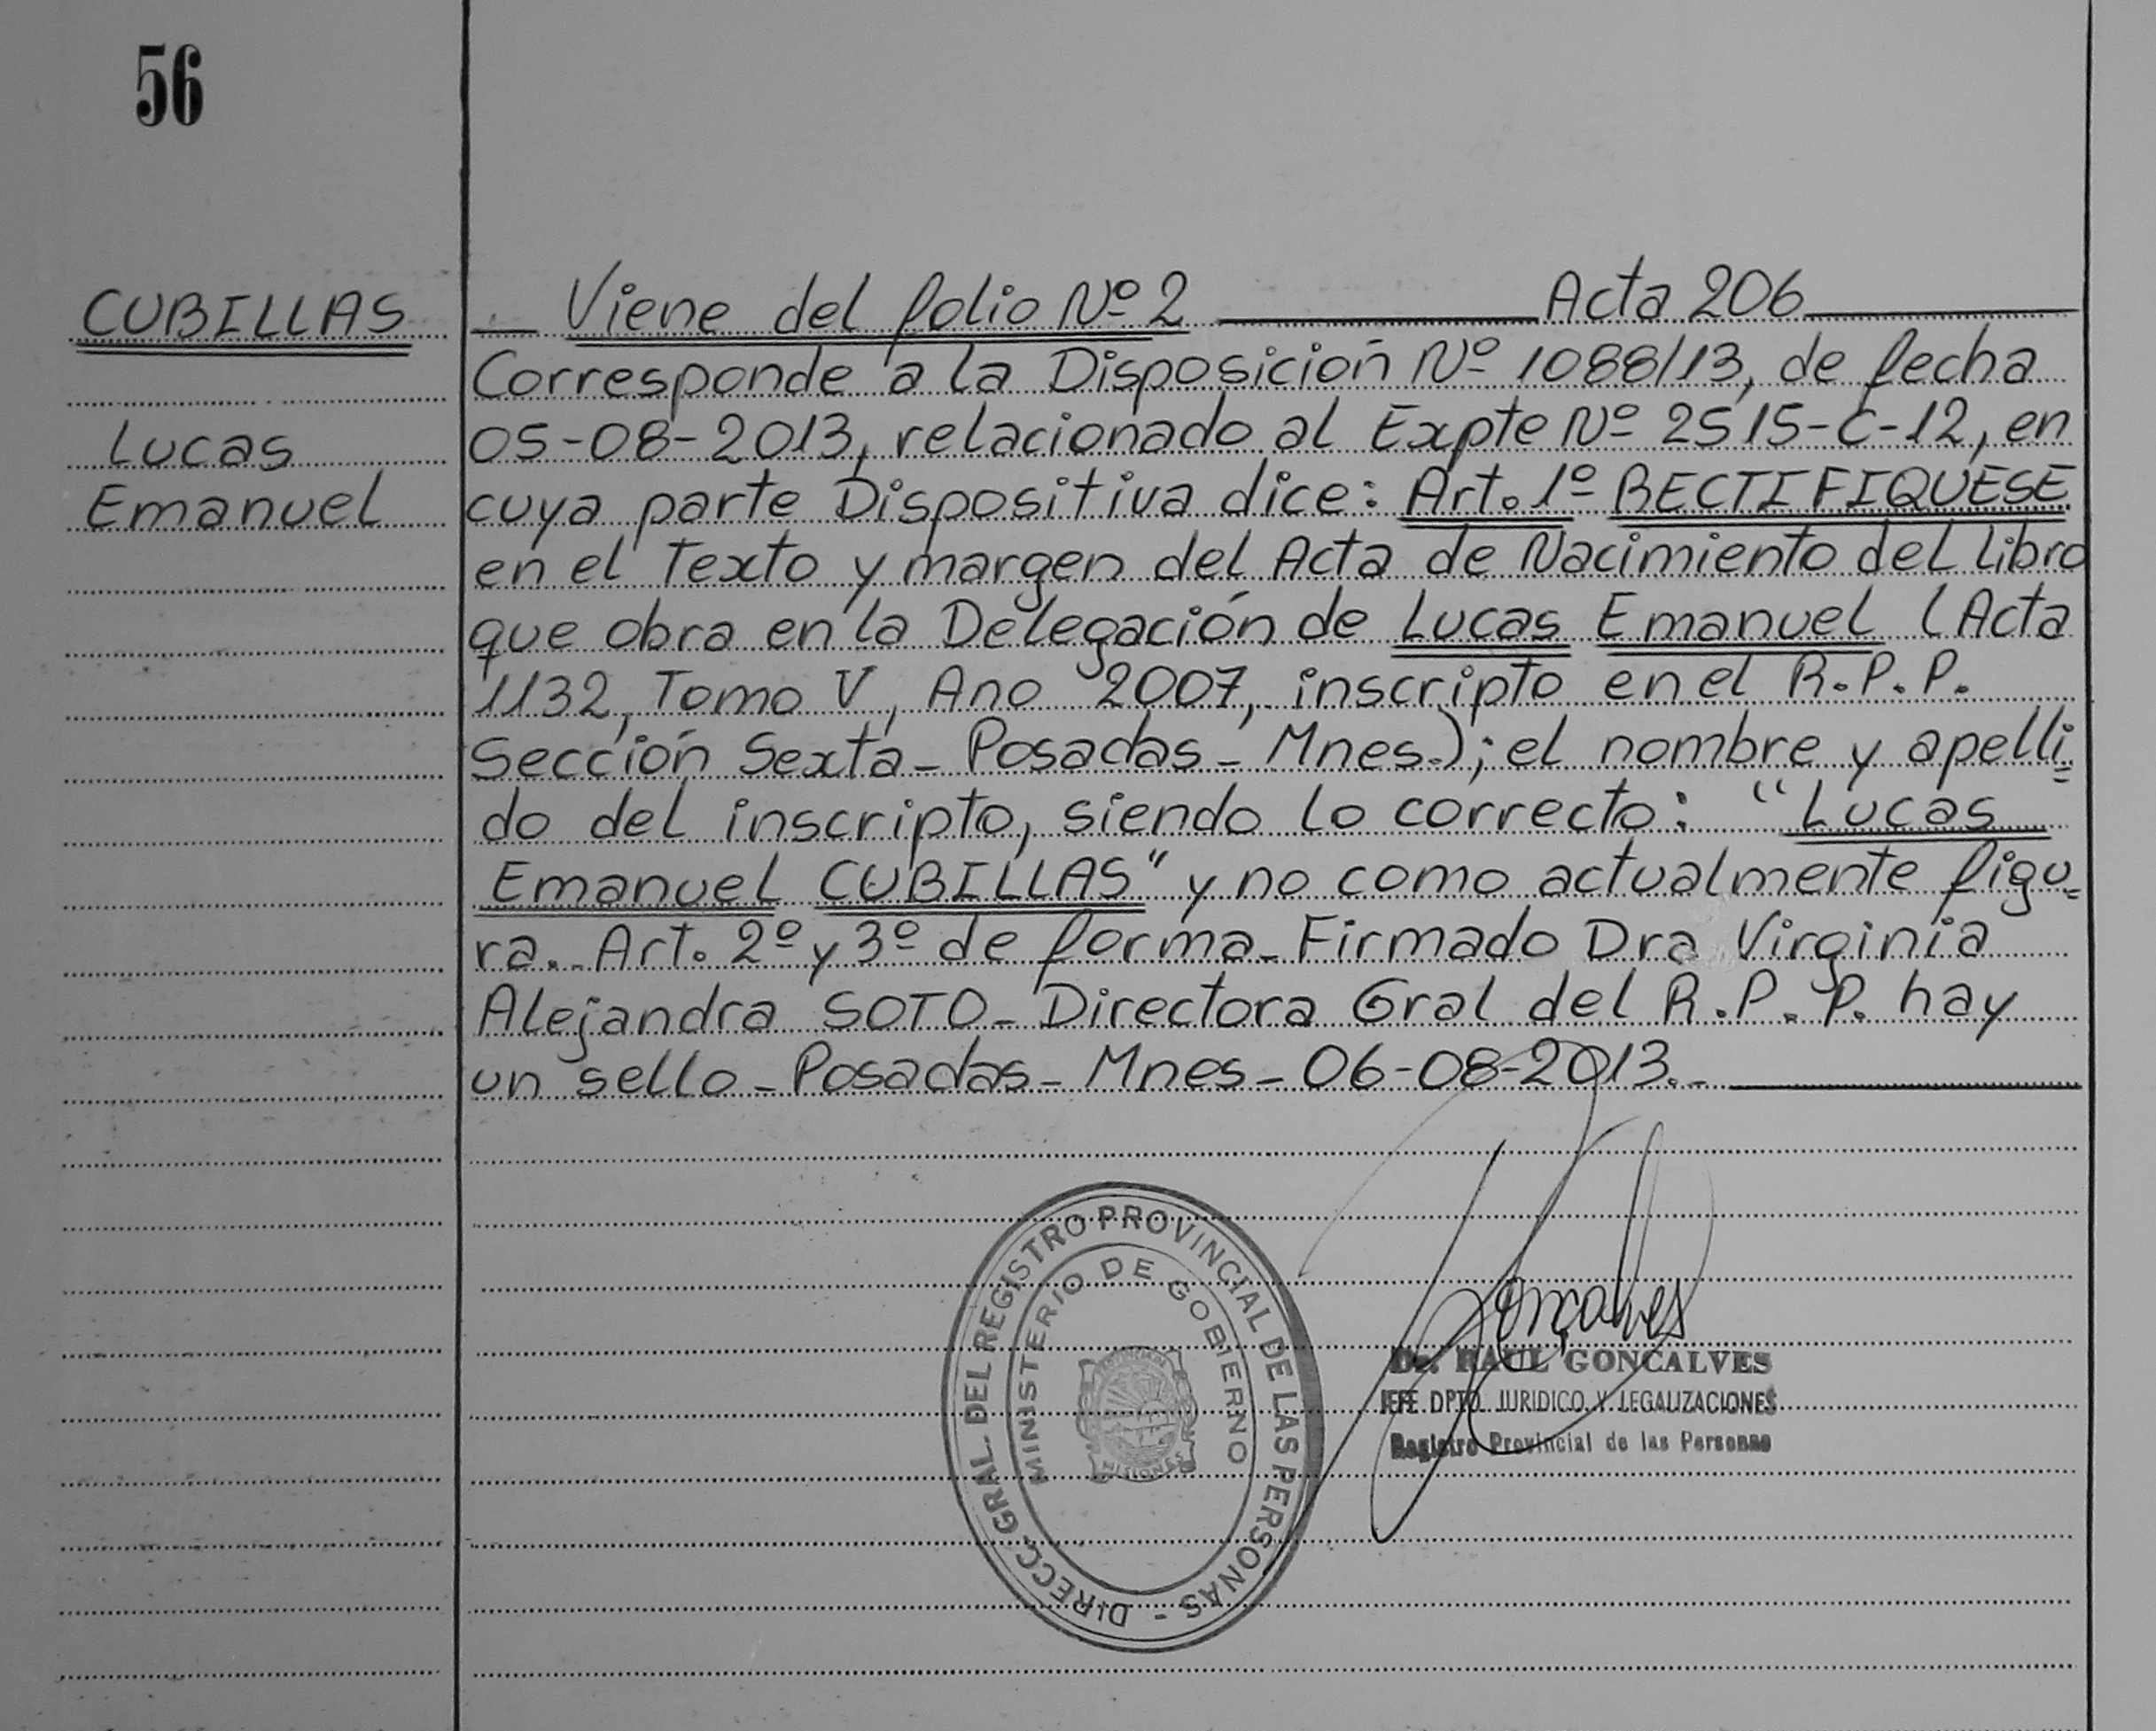 56
CUBILLAS
Lucas
Emanuel
Viene del folio Nº 2 Acta 206
Corresponde a la Disposición Nº 1088/13, de fecha
05-08-2013, relacionado al Expte Nº 2515-C-12, en
cuya parte Dispositiva dice: Art. 1º RECTIFIQUESE
en el Texto y margen del Acta de Nacimiento del libro
que obra en la Delegación de Lucas Emanuel (Acta
1132, Tomo V, Ano 2007, inscripto en el R.P.P.
Sección Sexta - Posadas - Mnes.); el nombre y apelli=
do del inscripto, siendo lo correcto: "Lucas
Emanuel CUBILLAS" y no como actualmente figu=
ra.- Art. 2º y 3º de forma - Firmado Dra Virginia
Alejandra SOTO - Directora Gral del R.P.P. hay
un sello - Posadas - Mnes - 06-08-2013.-
DIRECC. GRAL. DEL REGISTRO PROVINCIAL DE LAS PERSONAS -
MINISTERIO DE GOBIERNO
MISIONES
Gonçalves
Dr. RAUL GONCALVES
JEFE DPTO. JURIDICO Y LEGALIZACIONES
Registro Provincial de las Personas